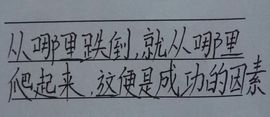 从哪里跌到,就从哪里
爬起来,这便是成功的因素